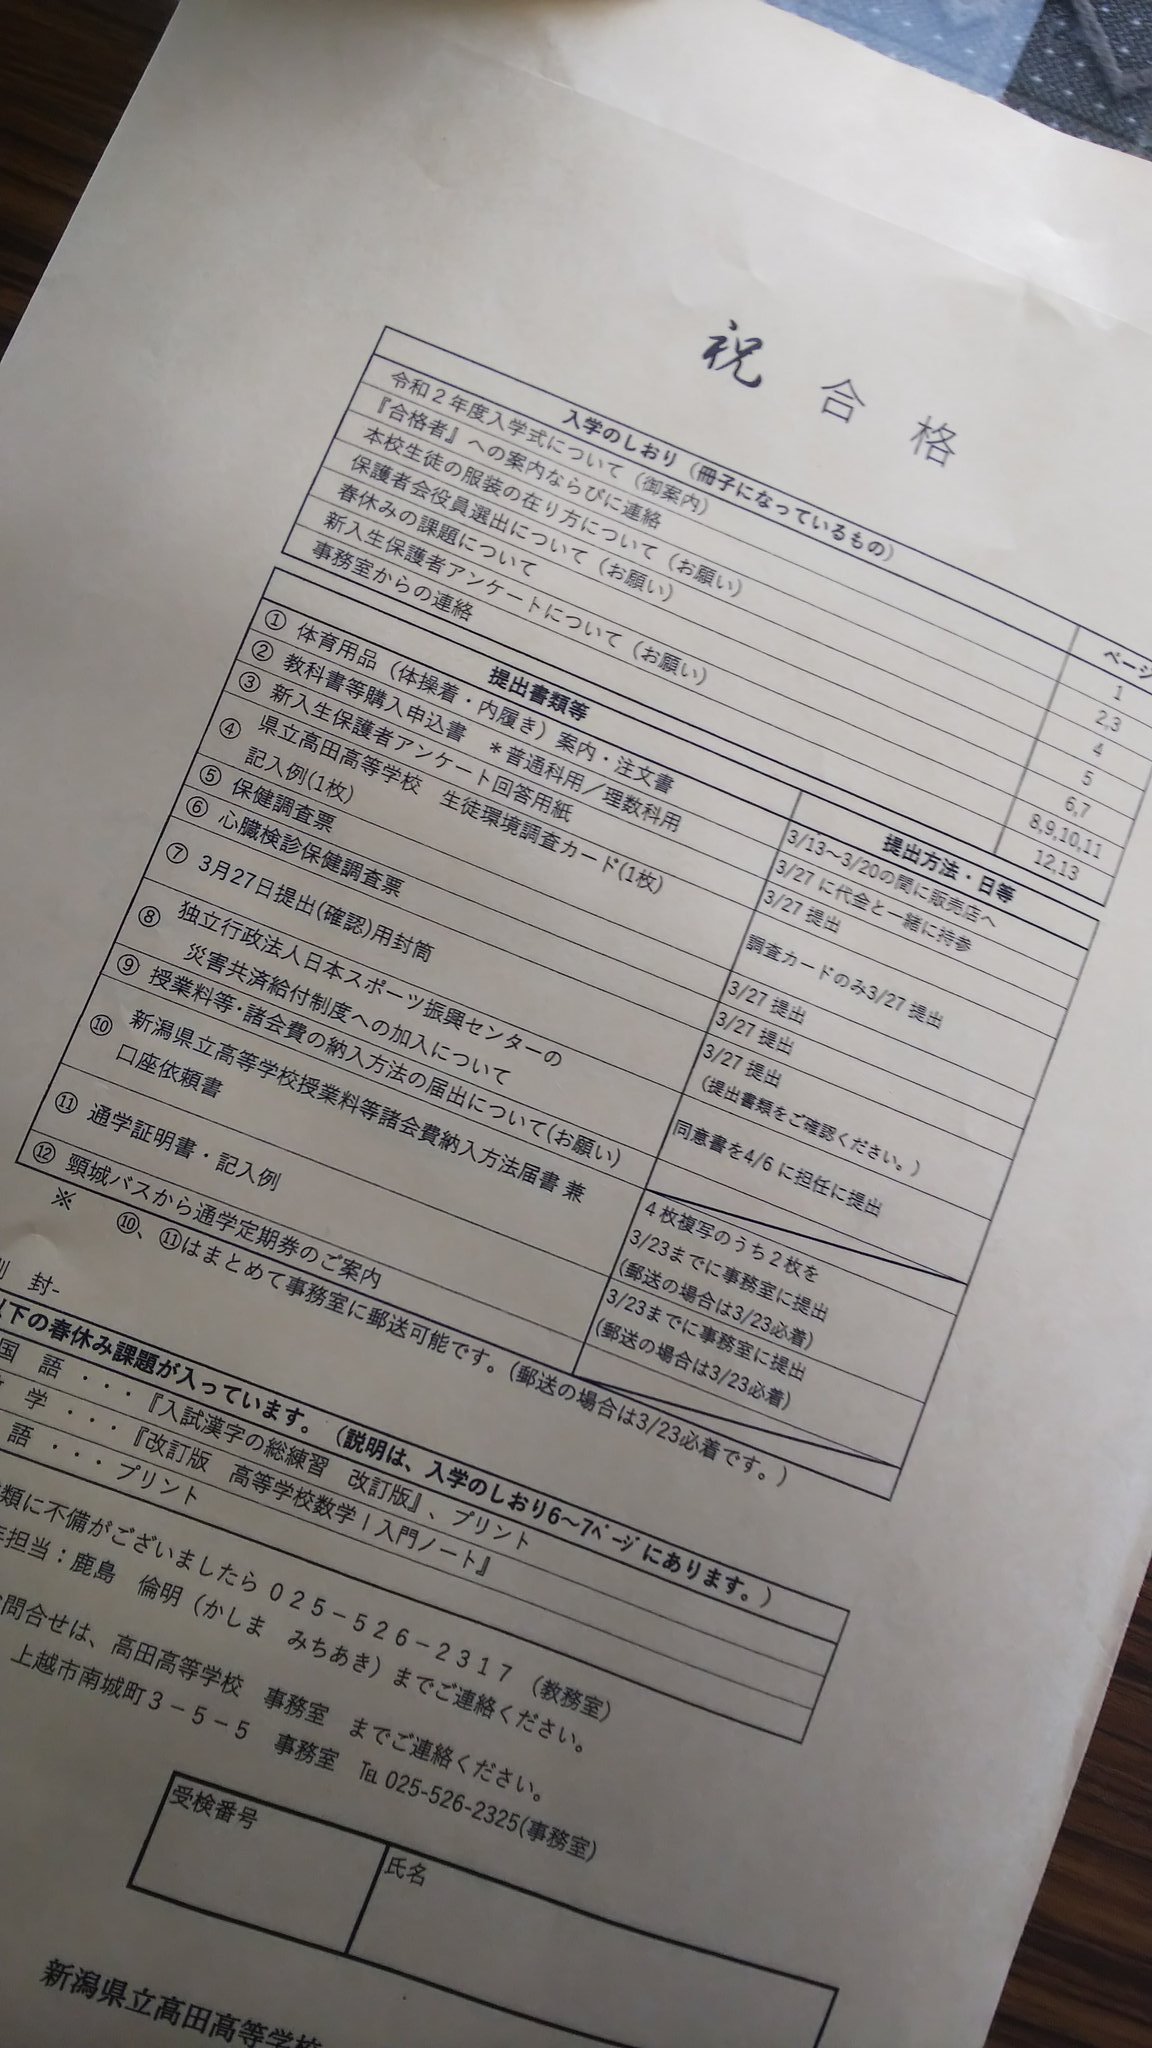 祝 合 格
入学のしおり（冊子になっているもの） ページ
令和２年度入学式について（御案内） 1
『合格者』への案内ならびに連絡 2,3
本校生徒の服装の在り方について（お願い） 4
保護者会役員選出について（お願い） 5
春休みの課題について 6,7
新入生保護者アンケートについて（お願い） 8,9,10,11
事務室からの連絡 12,13
提出書類等 提出方法・日等
① 体育用品（体操着・内履き）案内・注文書 3/13～3/20の間に販売店へ
② 教科書等購入申込書 ＊普通科用／理数科用 3/27 に代金と一緒に持参
③ 新入生保護者アンケート回答用紙 3/27 提出
④ 県立高田高等学校 生徒環境調査カード(1枚)
記入例(1枚) 調査カードのみ3/27 提出
⑤ 保健調査票 3/27 提出
⑥ 心臓検診保健調査票 3/27 提出
⑦ 3月27日提出(確認)用封筒 3/27 提出
（提出書類をご確認ください。）
⑧ 独立行政法人日本スポーツ振興センターの
災害共済給付制度への加入について 同意書を4/6 に担任に提出
⑨ 授業料等･諸会費の納入方法の届出について(お願い)
⑩ 新潟県立高等学校授業料等諸会費納入方法届書 兼
口座依頼書 ４枚複写のうち２枚を
3/23までに事務室に提出
(郵送の場合は3/23必着)
⑪ 通学証明書・記入例 3/23までに事務室に提出
(郵送の場合は3/23必着)
⑫ 頸城バスから通学定期券のご案内
※ ⑩、⑪はまとめて事務室に郵送可能です。(郵送の場合は3/23必着です。)
封-
以下の春休み課題が入っています。（説明は、入学のしおり6～7ﾍﾟｰｼﾞにあります。）
国 語 ・・・『入試漢字の総練習 改訂版』、プリント
学 ・・・『改訂版 高等学校数学Ⅰ入門ノート』
語 ・・・プリント
類に不備がございましたら ０２５－５２６－２３１７ （教務室）
担当：鹿島 倫明（かしま みちあき）までご連絡ください。
問合せは、高田高等学校 事務室 までご連絡ください。
上越市南城町３－５－５ 事務室 ℡ 025-526-2325(事務室)
受検番号 氏名
新潟県立高田高等学校